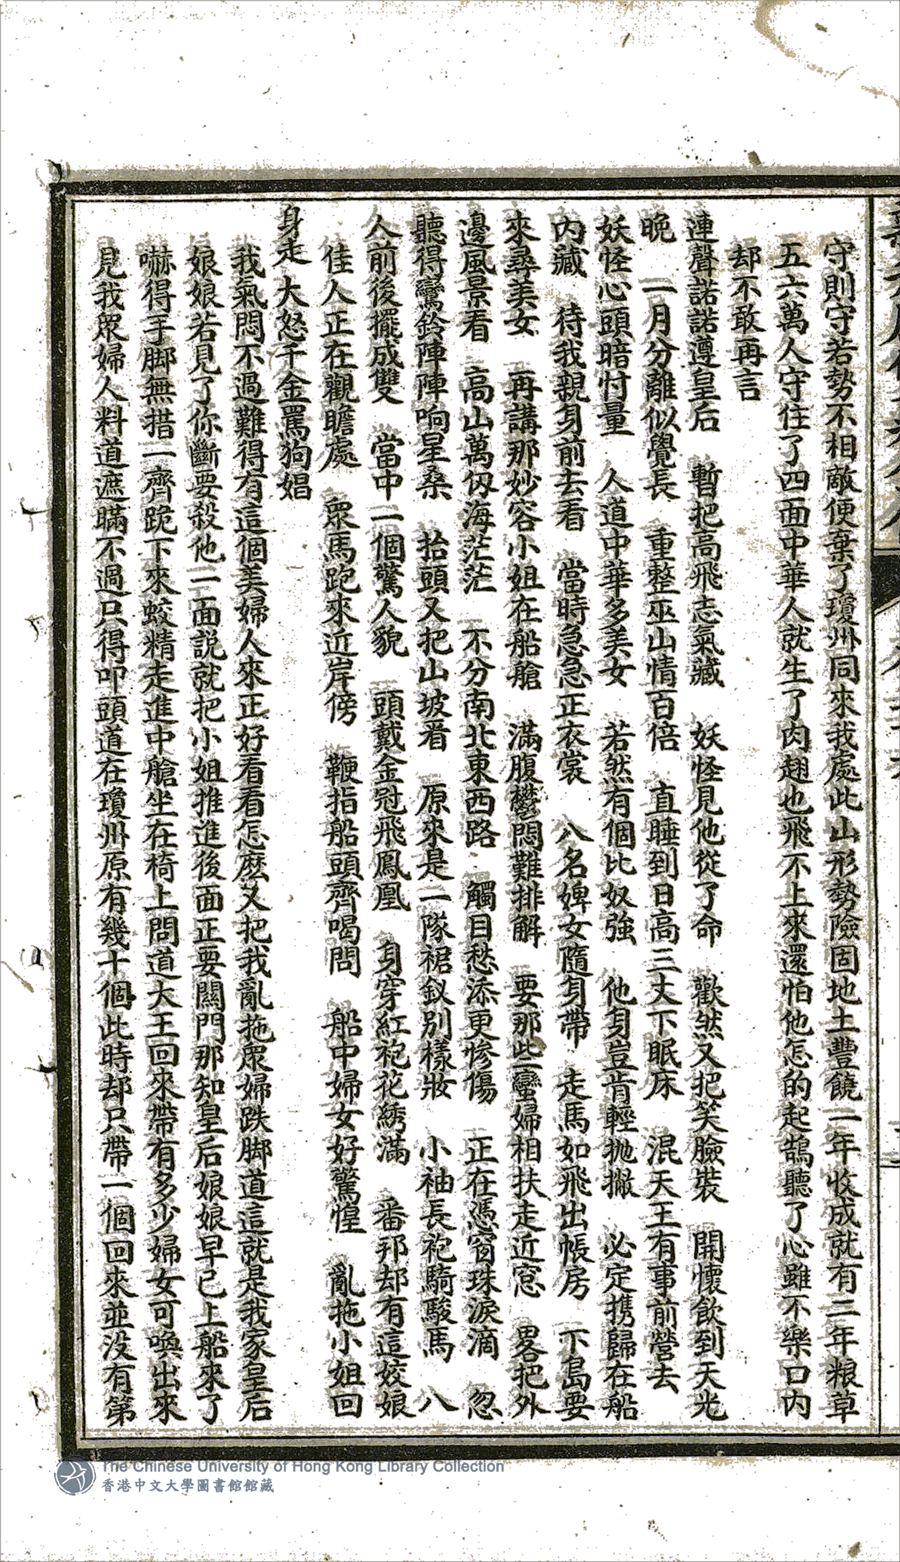 守則守若勢不相敵便棄了瓊州同來我處此山形勢險固地土豐饒一年收成就有二年粮草
五六萬人守住了四面中華人就生了肉翅也飛不上來還怕他怎的起鵠聽了心雖不樂口内
却不敢再言
連聲諾諾遵皇后　暫把高飛志氣藏　妖怪見他從了命　歡然又把笑臉裝　開懷飲到天光
晚　一月分離似覺長　重整巫山情百倍　直睡到日高三丈下眠床　混天王有事前營去
妖怪心頭暗忖量　人道中華多美女　若然有個比奴強　他身豈肯輕抛撇　必定携歸在船
内藏　待我親身前去看　當時急急正衣裳　八名婢女隨身帶　走馬如飛出帳房　下島要
來尋美女　再講那妙容小姐在船艙　滿腹欝悶難排解　要那些蠻婦相扶走近窓　畧把外
邊風景看　高山萬仭海茫茫　不分南北東西路　觸目愁添更慘傷　正在憑窗珠淚滴　忽
聽得鸞鈴陣陣响星桑　抬頭又把山坡看　原來是一隊裙釵別樣妝　小袖長袍騎駿馬　八
人前後擺成雙　當中一個驚人貌　頭戴金冠飛鳳凰　身穿紅袍花綉滿　番邦却有這姣娘
佳人正在觀瞻處　眾馬跑來近岸傍　鞭指船頭齊喝問　船中婦女好驚惶　亂拖小姐回
身走　大怒千金罵狗娼
我氣悶不過難得有這個美婦人來正好看看怎麽又把我亂拖眾婦跌脚道這就是我家皇后
娘娘若見了你斷要殺他一面説就把小姐推進後面正要關門那知皇后娘娘早已上船來了
嚇得手脚無措一齊跪下來蛟精走進中艙坐在椅上問道大王回來帶有多少婦女可喚出來
見我眾婦人料道遮瞞不過只得叩頭道在瓊州原有幾十個此時却只帶一個回來並没有第
The Chinese University of Hong Kong Library Collection
香港中文大學圖書館館藏